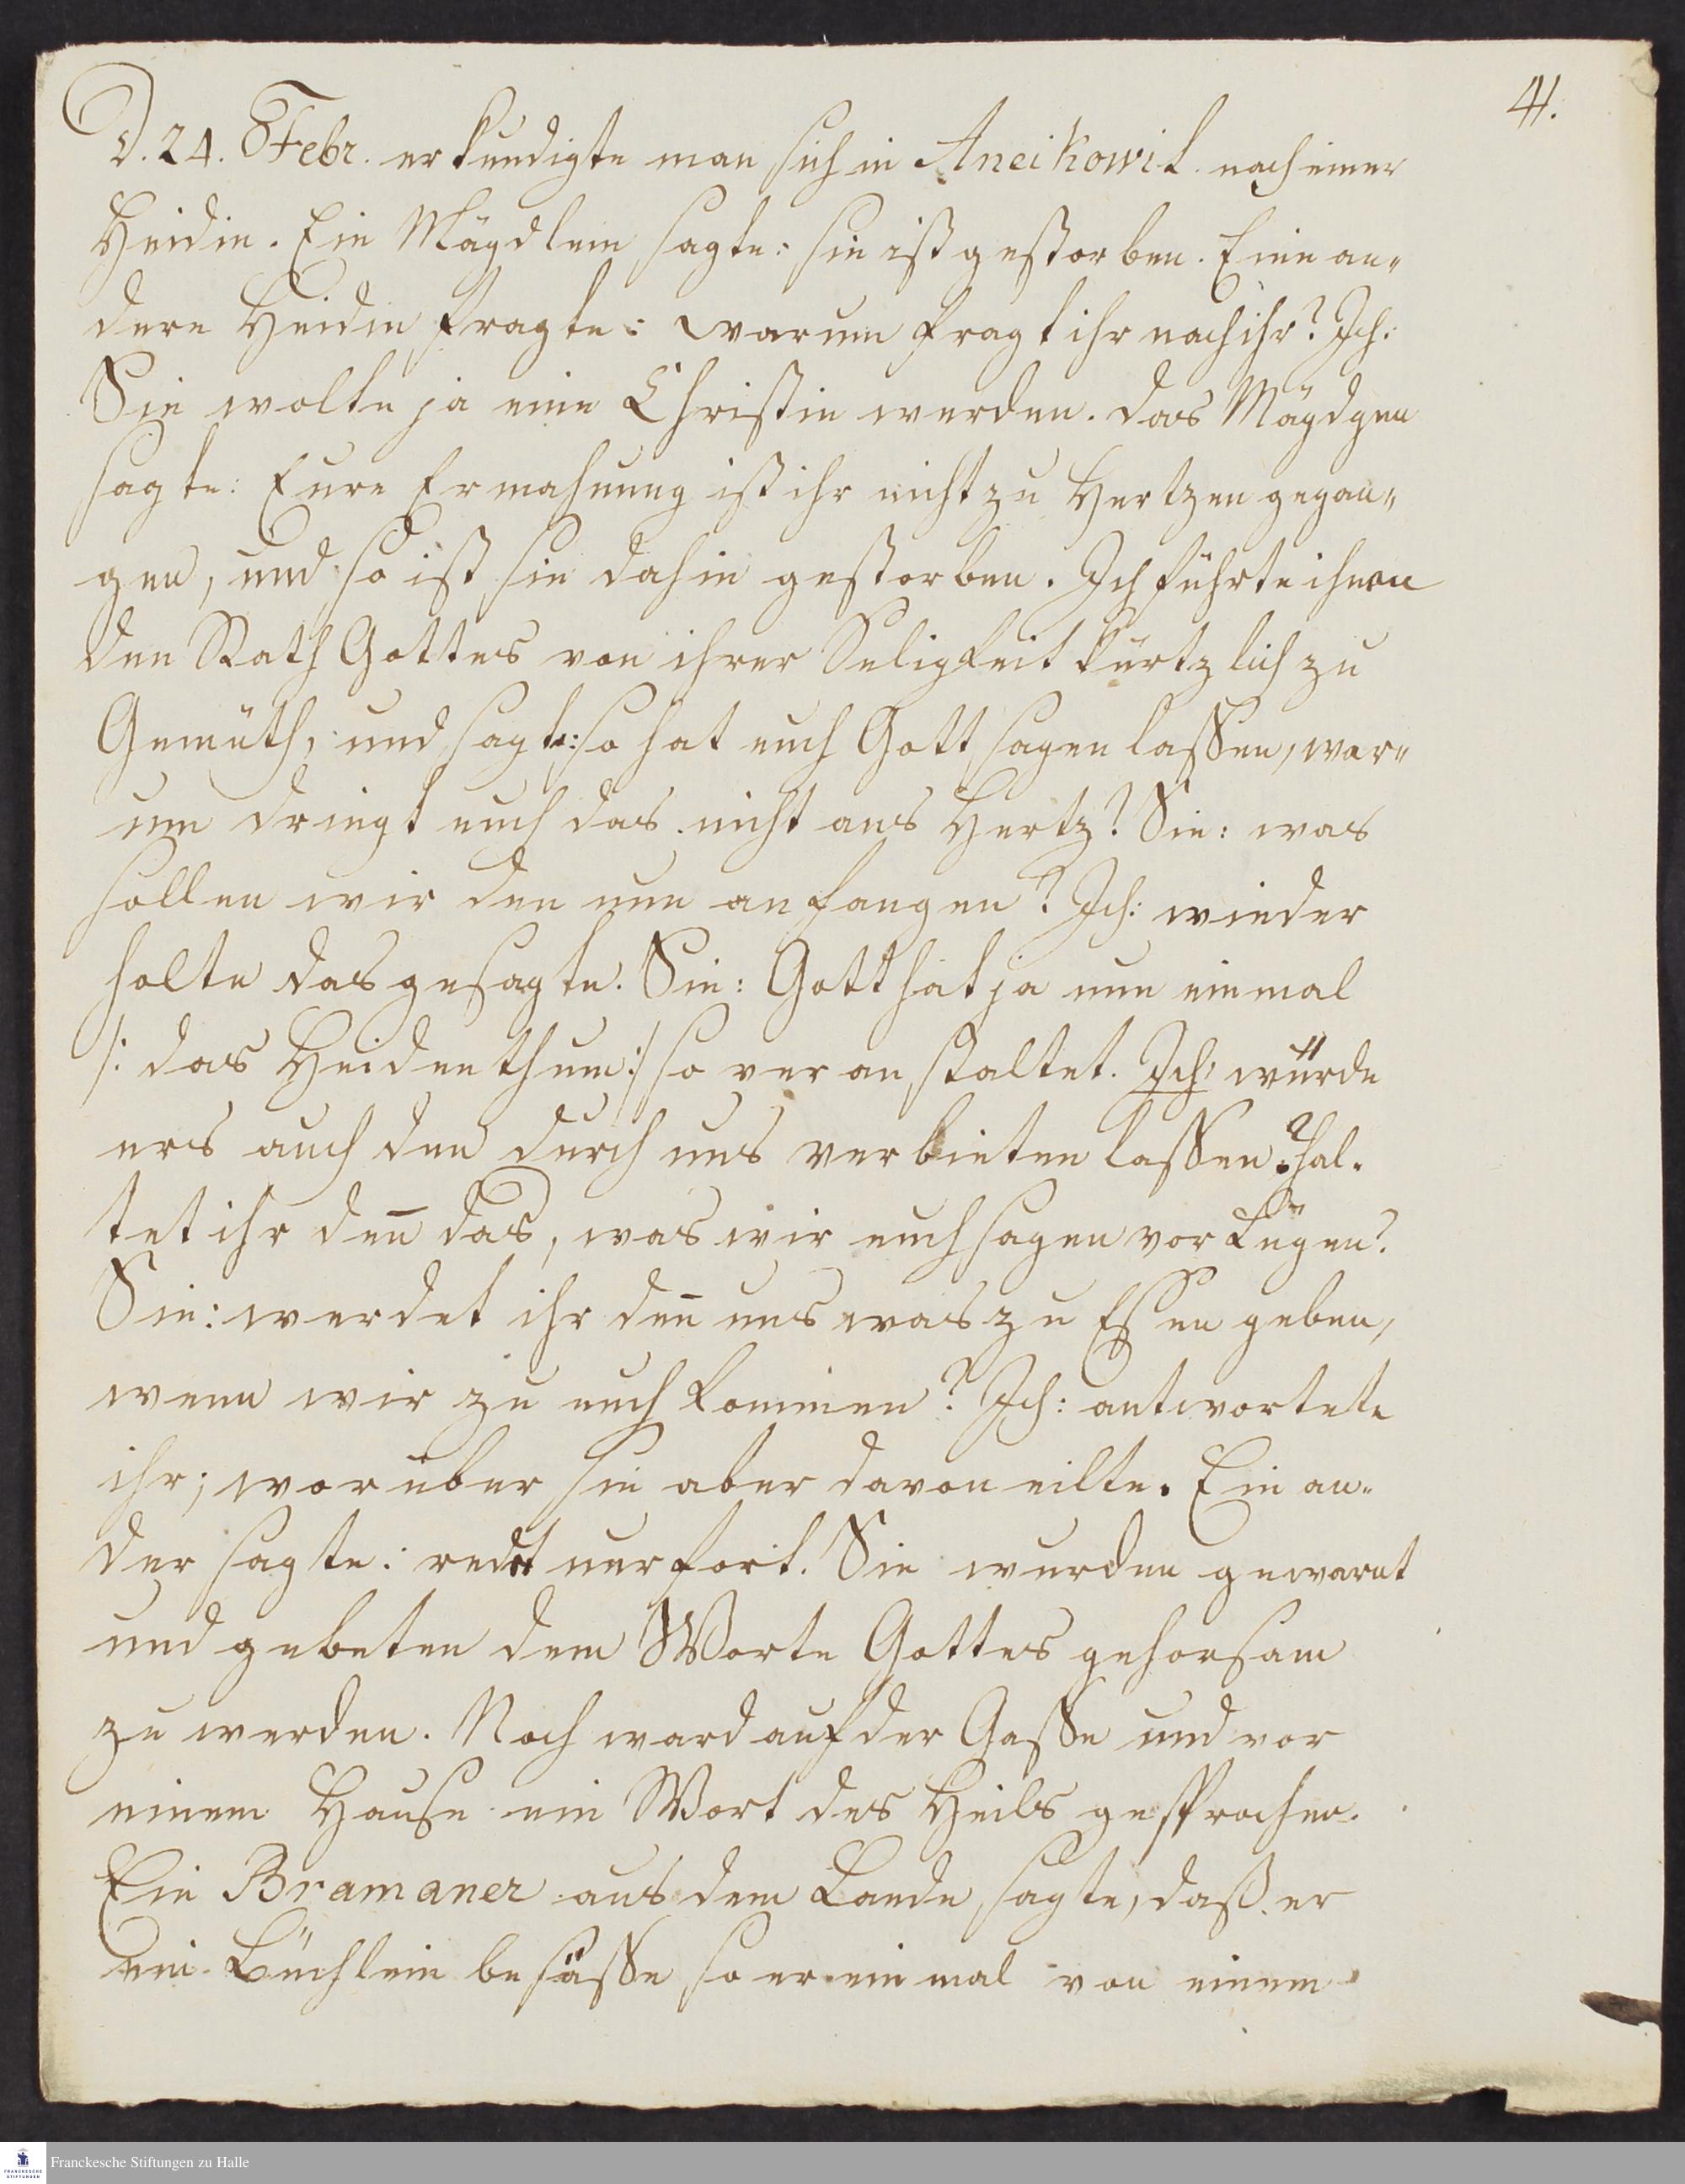 41.
D. 24. Febr. erkundigte man sich in Aneikowil nach einer
Heidin. Ein Mägdlein sagte: sie ist gestorben. Eine an„
dere Heidin fragte: warum fragt ihr nach ihr? Ich:
Sie wolte ja eine Christin werden. das Mägdgen
sagte: Eure Ermahnung ist ihr nicht zu Hertzen gegan„
gen, und so ist sie dahin gestorben. Ich führte ihnen
den Rath Gottes von ihrer Seligkeit kürtzlich zu
Gemüth, und sagte: so hat euch Gott sagen lassen, war„
um dringt euch das nicht ans Hertz? Sie: was
sollen wir den nun anfangen? Ich: wieder
holte das gesagte. Sie: Gott hat ja nun einmal
/: das Heidenthum :/ so veranstaltet. Ich: würde
ers auch den durch uns verbieten lassen? hal-
tet ihr deñ das, was wir euch sagen vor Lügen?
Sie: werdet ihr deñ uns was zu Essen geben,
wenn wir zu euch kommen? Ich: antwortete
ihr; worüber sie aber davon eilte. Ein an-
der sagte: redet nur fort. Sie wurden gewarnt
und gebeten dem Worte Gottes gehorsam
zu werden. Noch ward auf der Gasse und vor
einem Hause ein Wort des Heils gesprochen.
Ein Bramaner aus dem Lande sagte, daß er
ein Büchlein besässe so er einmal von einem
Franckesche Stiftungen zu Halle
FRANCKESCHE STIFTUNGEN